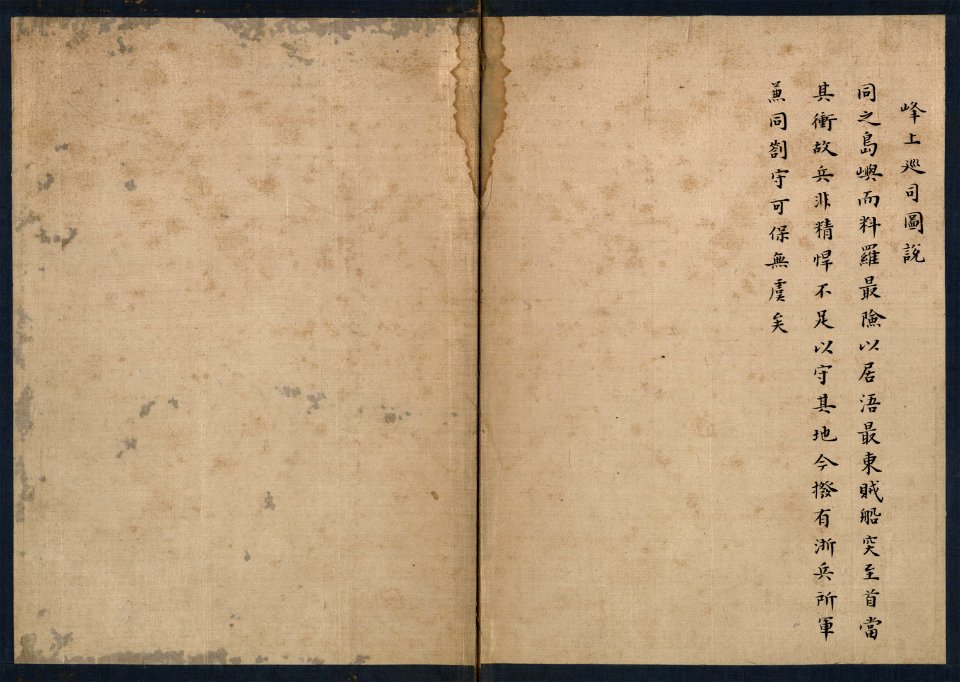 峰上巡司圖說
同之島嶼而料羅最險以居浯最東賊船突至首當
其衝故兵非精悍不足以守其地今撥有浙兵所軍
兼同劄守可保無虞矣